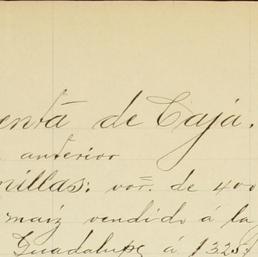 enta de Caja.
anterior
nillas: vor. de 400
maiz vendido á la
Guadalupe á $1325